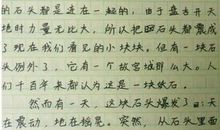 的石头都是连在一起的，由于盘古开天
地时力量无比大，所以把石头都震成
了现在我们看见的小块块。但有一块石
头例外了，它有一个故宫城那么大。人
们千百年来都认为这是一块纸石。
然而有一天，这块石头爆发了：天
在震动，地在摇晃。突然，从石头里面